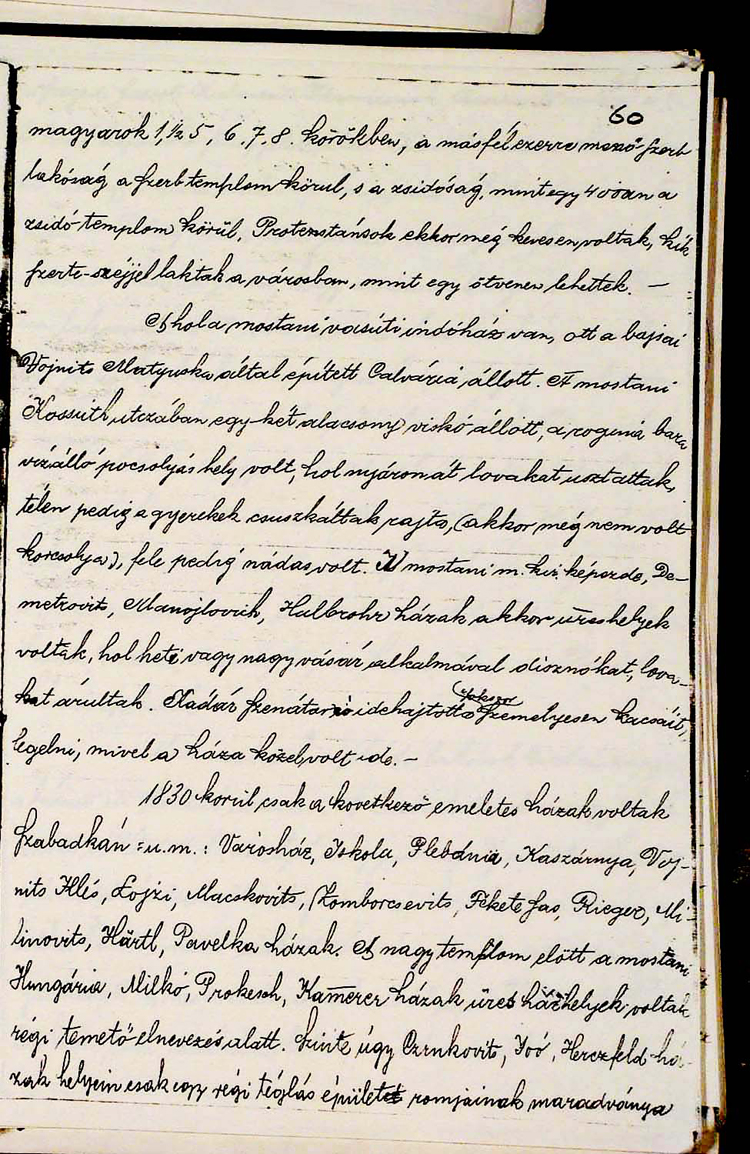 60
magyarok 1, ½ 5, 6. 7. 8. körökben, a másfélezerre menő szerb
lakóság a szerb templom körül, s a zsidóság, mint egy 400an a
zsidó templom körül, Protenstánsok ekkor még kevesen voltak, kik
szerte-széjjel laktak a városban, mint egy ötvenen lehettek. —
A hol a mostani vasúti indóház van, ott a bajsai
Vojnits Matyuska által épített Calvária állott. A mostani
Kossuth utczában egy-két alacsony viskó állott, a rogina bara
vizálló pocsolyás hely volt, hol nyáron át lovakat usztattak,
télen pedig a gyerekek csuszkáltak rajta, (akkor még nem volt
korcsolya), fele pedig nádas volt. A mostani m. kir. képezde, De-
metrovits, Manojlovich, Halbrohr házak akkor üres helyek
voltak, hol heti vagy nagy vásár alkalmával disznókat, lova-
kat árultak. szenátor idehajtotta (sokszor) személyesen kacsáit,
legelni, mivel a háza közel volt ide. —
1830 körül csak a következő emeletes házak voltak
Szabadkán = u.m.: Városház, Iskola, Plebánia, Kaszárnya, Voj-
nits Illés, Lojzi, Macskovits, Zomborcsevits, Fekete sas, Rieger, Mi-
linovits, Härtl, Pavelka házak. A nagytemplom előtt a mostani
Hungária, Milkó, Prokesch, Kamerer házak üres házhelyek voltak
régi temető elnevezés alatt. Szinte úgy Czrnkovits, Joó, Herczfeld há-
zak helyein csak egy régi téglás épület romjainak maradványa